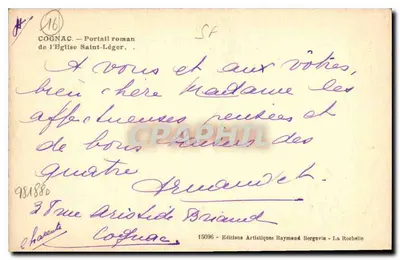 16
COGNAC. — Portail roman
de l'Eglise Saint-Léger.
A vous et aux vôtres,
bien chère Madame les
affectueuses pensées et
de bons des
quatre
981880
38 rue Aristide Briand
Cognac
Charente
15096 - Editions Artistiques Raymond Bergevin - La Rochelle
CPAPHIL